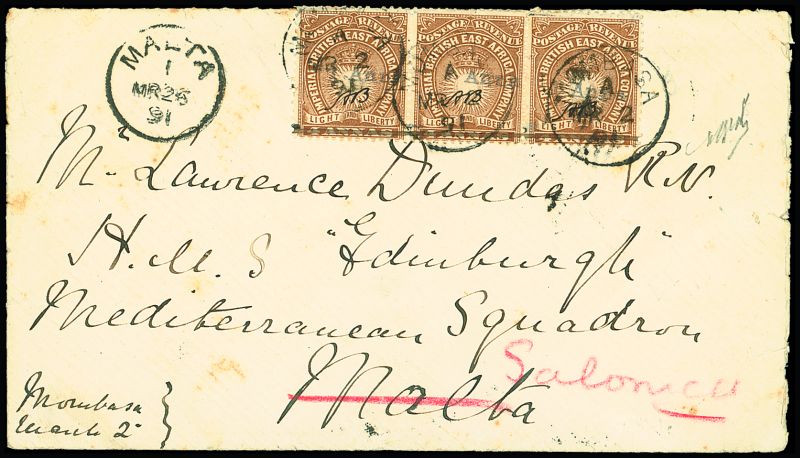 POSTAGE REVENUE POSTAGE REVENUE POSTAGE REVENUE
IMPERIAL BRITISH EAST AFRICA COMPANY IMPERIAL BRITISH EAST AFRICA COMPANY IMPERIAL BRITISH EAST AFRICA COMPANY
LIGHT LIBERTY LIGHT LIBERTY LIGHT LIBERTY
MALTA
1
MR 26
91
Mr. Lawrence Dundas R.N.
H.M.S "Edinburgh"
Mediterranean Squadron
Malta
Salonica
Mombasa
March 2